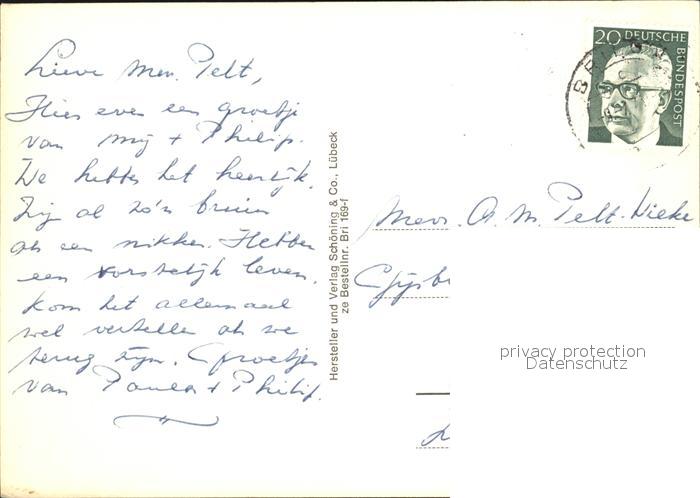 Lieve Mev. Pelt,
Hier even een groetje
van mij + Philip.
We hebben het heerlijk.
Zijn al zo'n bruin
als een nikker. Hebben
een vorstelijk leven.
Kom het allemaal
wel vertellen als we
terug zijn. Groetjes
van Paula + Philip.
Hersteller und Verlag Schöning & Co., Lübeck
ze Bestellnr. Bri 169-f
20 DEUTSCHE
BUNDESPOST
BRILON
Mevr. A. M. Pelt-
Gijsb
privacy protection
Datenschutz